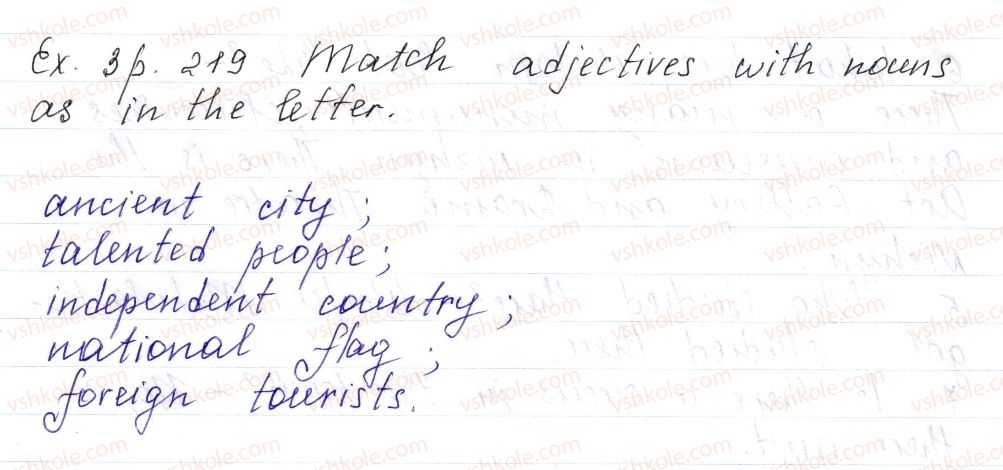 Ex. 3 p. 219 Match adjectives with nouns
as in the letter.
ancient city;
talented people;
independent country;
national flag;
foreign tourists.